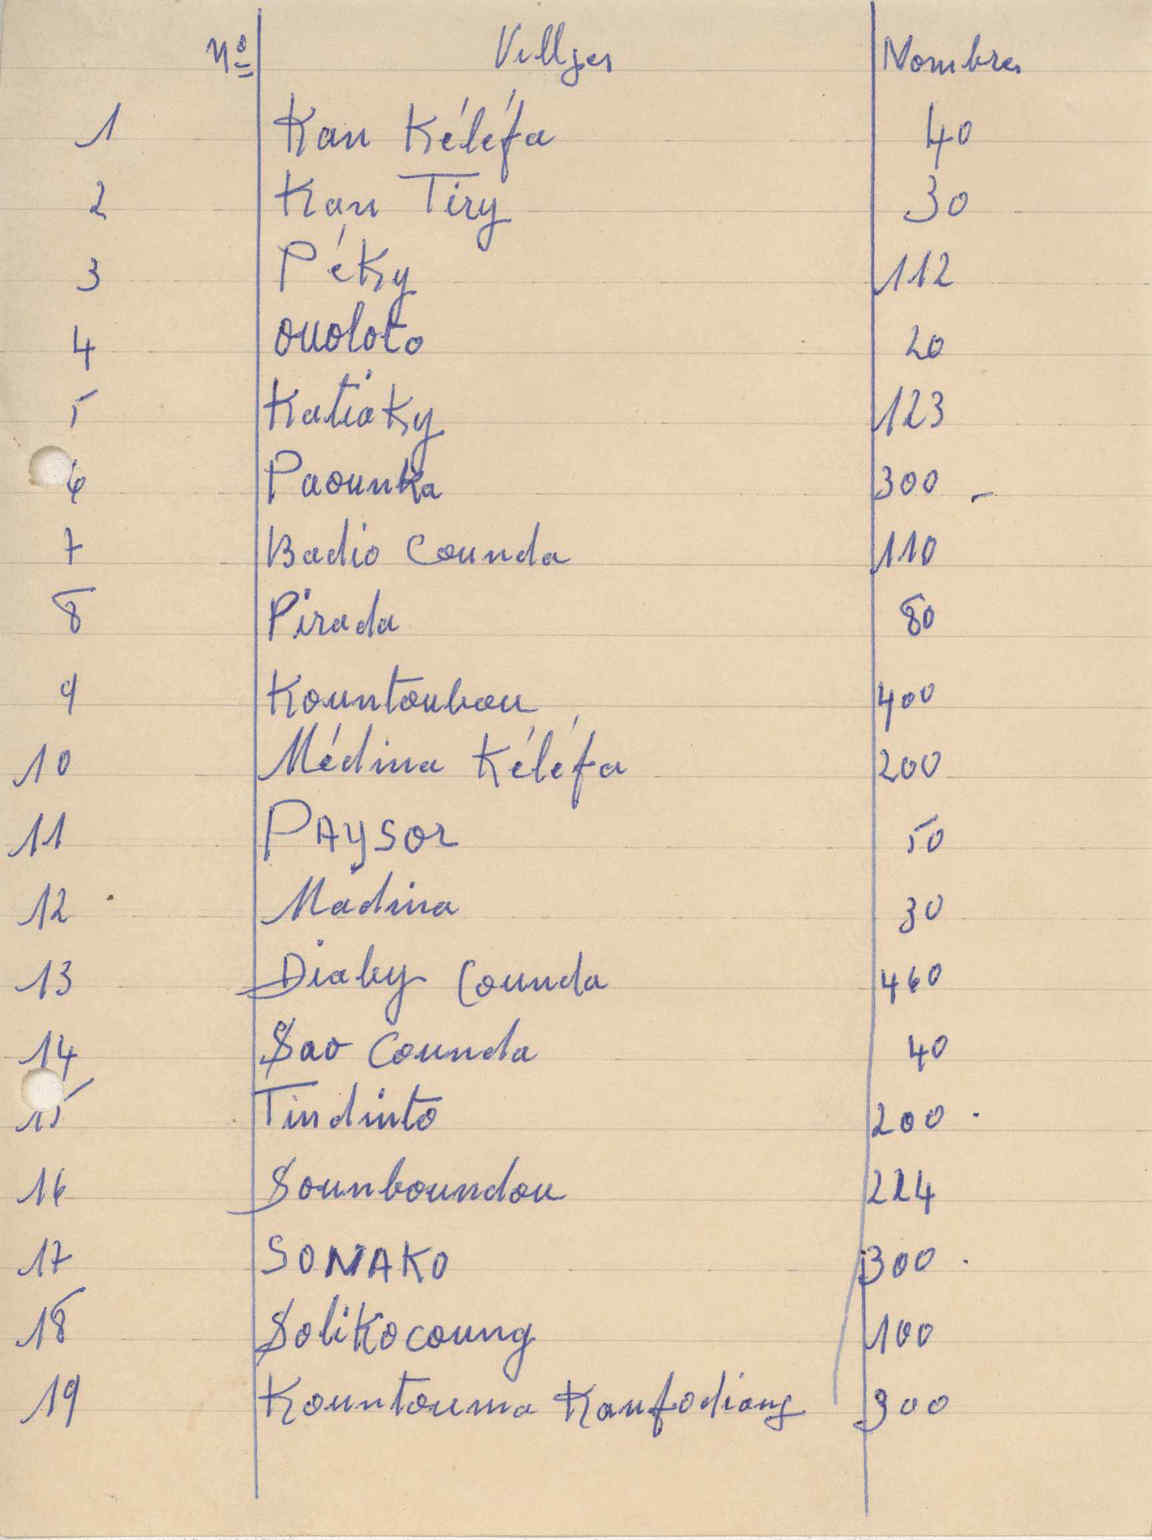 Nº Villges Nombres
1 Kan Kéléfa 40
2 Kan Tiry 30
3 Péky 112
4 Ouoloto 20
5 Katiaky 123
6 Paounka 300
7 Badio Counda 110
8 Pirada 80
9 Kountoubou 400
10 Médina Kéléfa 200
11 PAYSOR 50
12 Madina 30
13 Diaby Counda 460
14 Sao Counda 40
15 Tindinto 200
16 Sounboundou 224
17 SONAKO 300
18 Solikocoung 100
19 Kountouma Kanfodiang 300